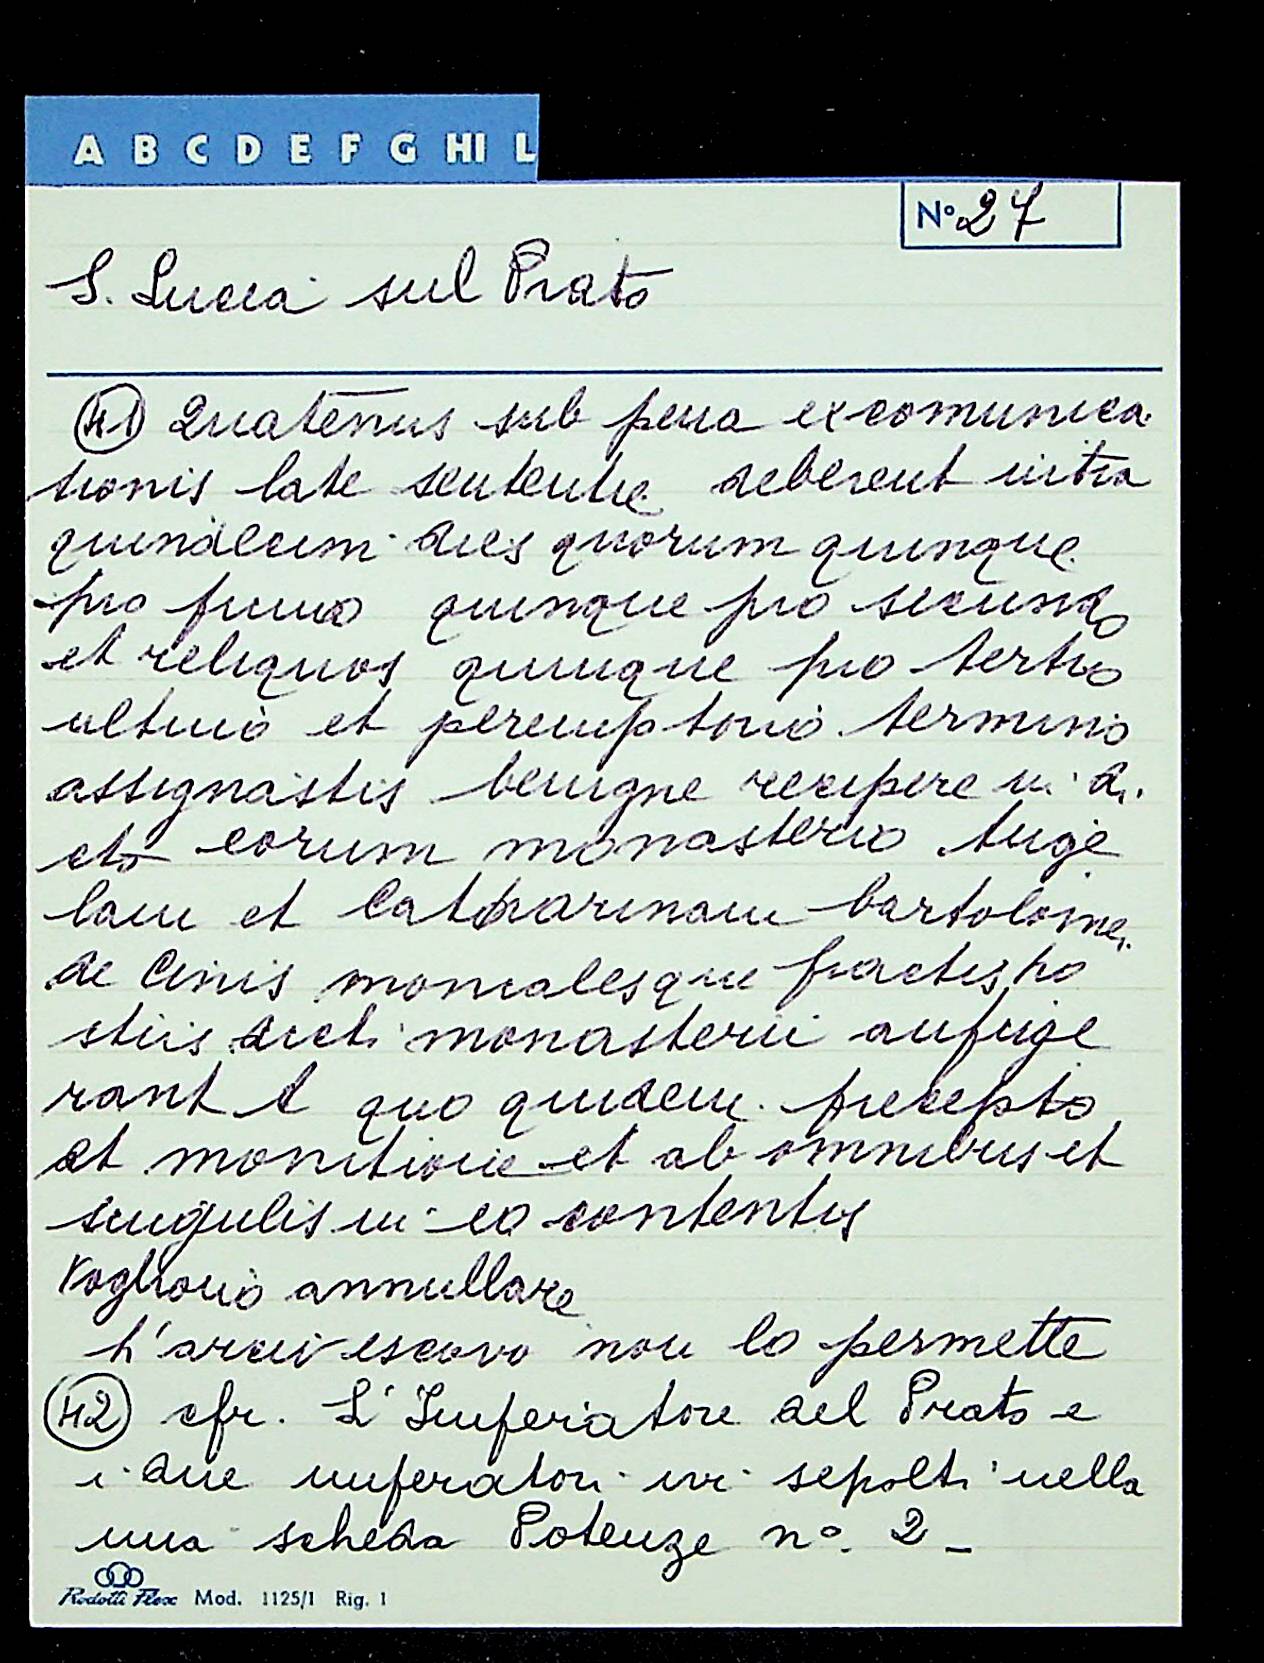 A B C D E F G HI L
N° 27
S. Lucia sul Prato
41) Quatenus sub pena excomunica
tionis late sententie deberent intra
quindecim dies quorum quinque
pro primo quinque pro secundo
et reliquos quinque pro tertio
ultimo et peremptorio termino
assignastis benigne recipere in di
cto eorum monasterio Ange
lam et Catharinam bartolomei
de Cinis monialesque fractis ho
stiis dicti monasterii aufuge
rant A quo quidem precepto
et monitione et ab omnibus et
singulis in eo contentis
Vogliono annullare
L'arcivescovo non lo permette
42) cfr. L'Imperatore del Prato e
i due imperatori ivi sepolti nella
mia scheda Potenze n°. 2 -
Rodotti Flex Mod. 1125/1 Rig. 1